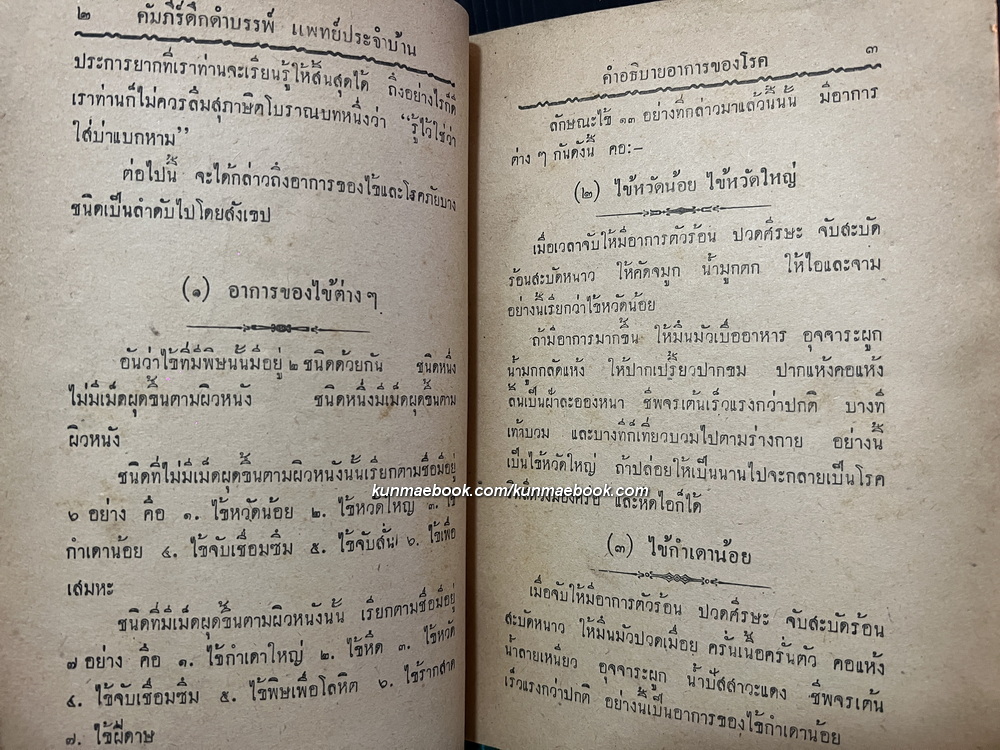 ๒ คัมภีร์ดึกดำบรรพ์ แพทย์ประจำบ้าน
ประการยากที่เราท่านจะเรียนรู้ให้สิ้นสุดได้ ถึงอย่างไรก็ดี
เราท่านก็ไม่ควรลืมสุภาษิตโบราณบทหนึ่งว่า “รู้ไว้ใช่ว่า
ใส่บ่าแบกหาม”
ต่อไปนี้ จะได้กล่าวถึงอาการของไข้และโรคภัยบาง
ชนิดเป็นลำดับไปโดยสังเขป
(๑) อาการของไข้ต่าง ๆ
อันว่าไข้ที่มีพิษนั้นมีอยู่ ๒ ชนิดด้วยกัน ชนิดหนึ่ง
ไม่มีเม็ดผุดขึ้นตามผิวหนัง ชนิดหนึ่งมีเม็ดผุดขึ้นตาม
ผิวหนัง
ชนิดที่ไม่มีเม็ดผุดขึ้นตามผิวหนังนั้นเรียกตามชื่อมีอยู่
๖ อย่าง คือ ๑. ไข้หวัดน้อย ๒. ไข้หวัดใหญ่ ๓. ไข้
กำเดาน้อย ๔. ไข้จับเชื่อมซึม ๕. ไข้จับสั่น ๖. ไข้เพื่อ
เสมหะ
ชนิดที่มีเม็ดผุดขึ้นตามผิวหนังนั้น เรียกตามชื่อมีอยู่
๗ อย่าง คือ ๑. ไข้กำเดาใหญ่ ๒. ไข้หืด ๓. ไข้หวัด
๔. ไข้จับเชื่อมซึม ๕. ไข้พิษเพื่อโลหิต ๖. ไข้รากสาด
๗. ไข้ฝีดาษ
คำอธิบายอาการของโรค ๓
ลักษณะไข้ ๑๓ อย่างที่กล่าวมาแล้วนี้นั้น มีอาการ
ต่าง ๆ กันดังนี้ คือ:–
(๒) ไข้หวัดน้อย ไข้หวัดใหญ่
เมื่อเวลาจับให้มีอาการตัวร้อน ปวดศีรษะ จับสะบัด
ร้อนสะบัดหนาว ให้คัดจมูก น้ำมูกตก ให้ไอและจาม
อย่างนี้เรียกว่าไข้หวัดน้อย
ถ้ามีอาการมากขึ้น ให้มึนมัวเบื่ออาหาร อุจจาระผูก
น้ำมูกกลัดแห้ง ให้ปากเปรี้ยวปากขม ปากแห้งคอแห้ง
ลิ้นเป็นฝ้าละอองหนา ชีพจรเต้นเร็วแรงกว่าปกติ บางที
เท้าบวม และบางทีก็เที่ยวบวมไปตามร่างกาย อย่างนี้
เป็นไข้หวัดใหญ่ ถ้าปล่อยให้เป็นนานไปจะกลายเป็นโรค
และหืดไอก็ได้
kunmaebook.com/kunmaebook.com
(๓) ไข้กำเดาน้อย
เมื่อจับให้มีอาการตัวร้อน ปวดศีรษะ จับสะบัดร้อน
สะบัดหนาว ให้มึนมัวปวดเมื่อย ครั่นเนื้อครั่นตัว คอแห้ง
น้ำลายเหนียว อุจจาระผูก น้ำปัสสาวะแดง ชีพจรเต้น
เร็วแรงกว่าปกติ อย่างนี้เป็นอาการของไข้กำเดาน้อย